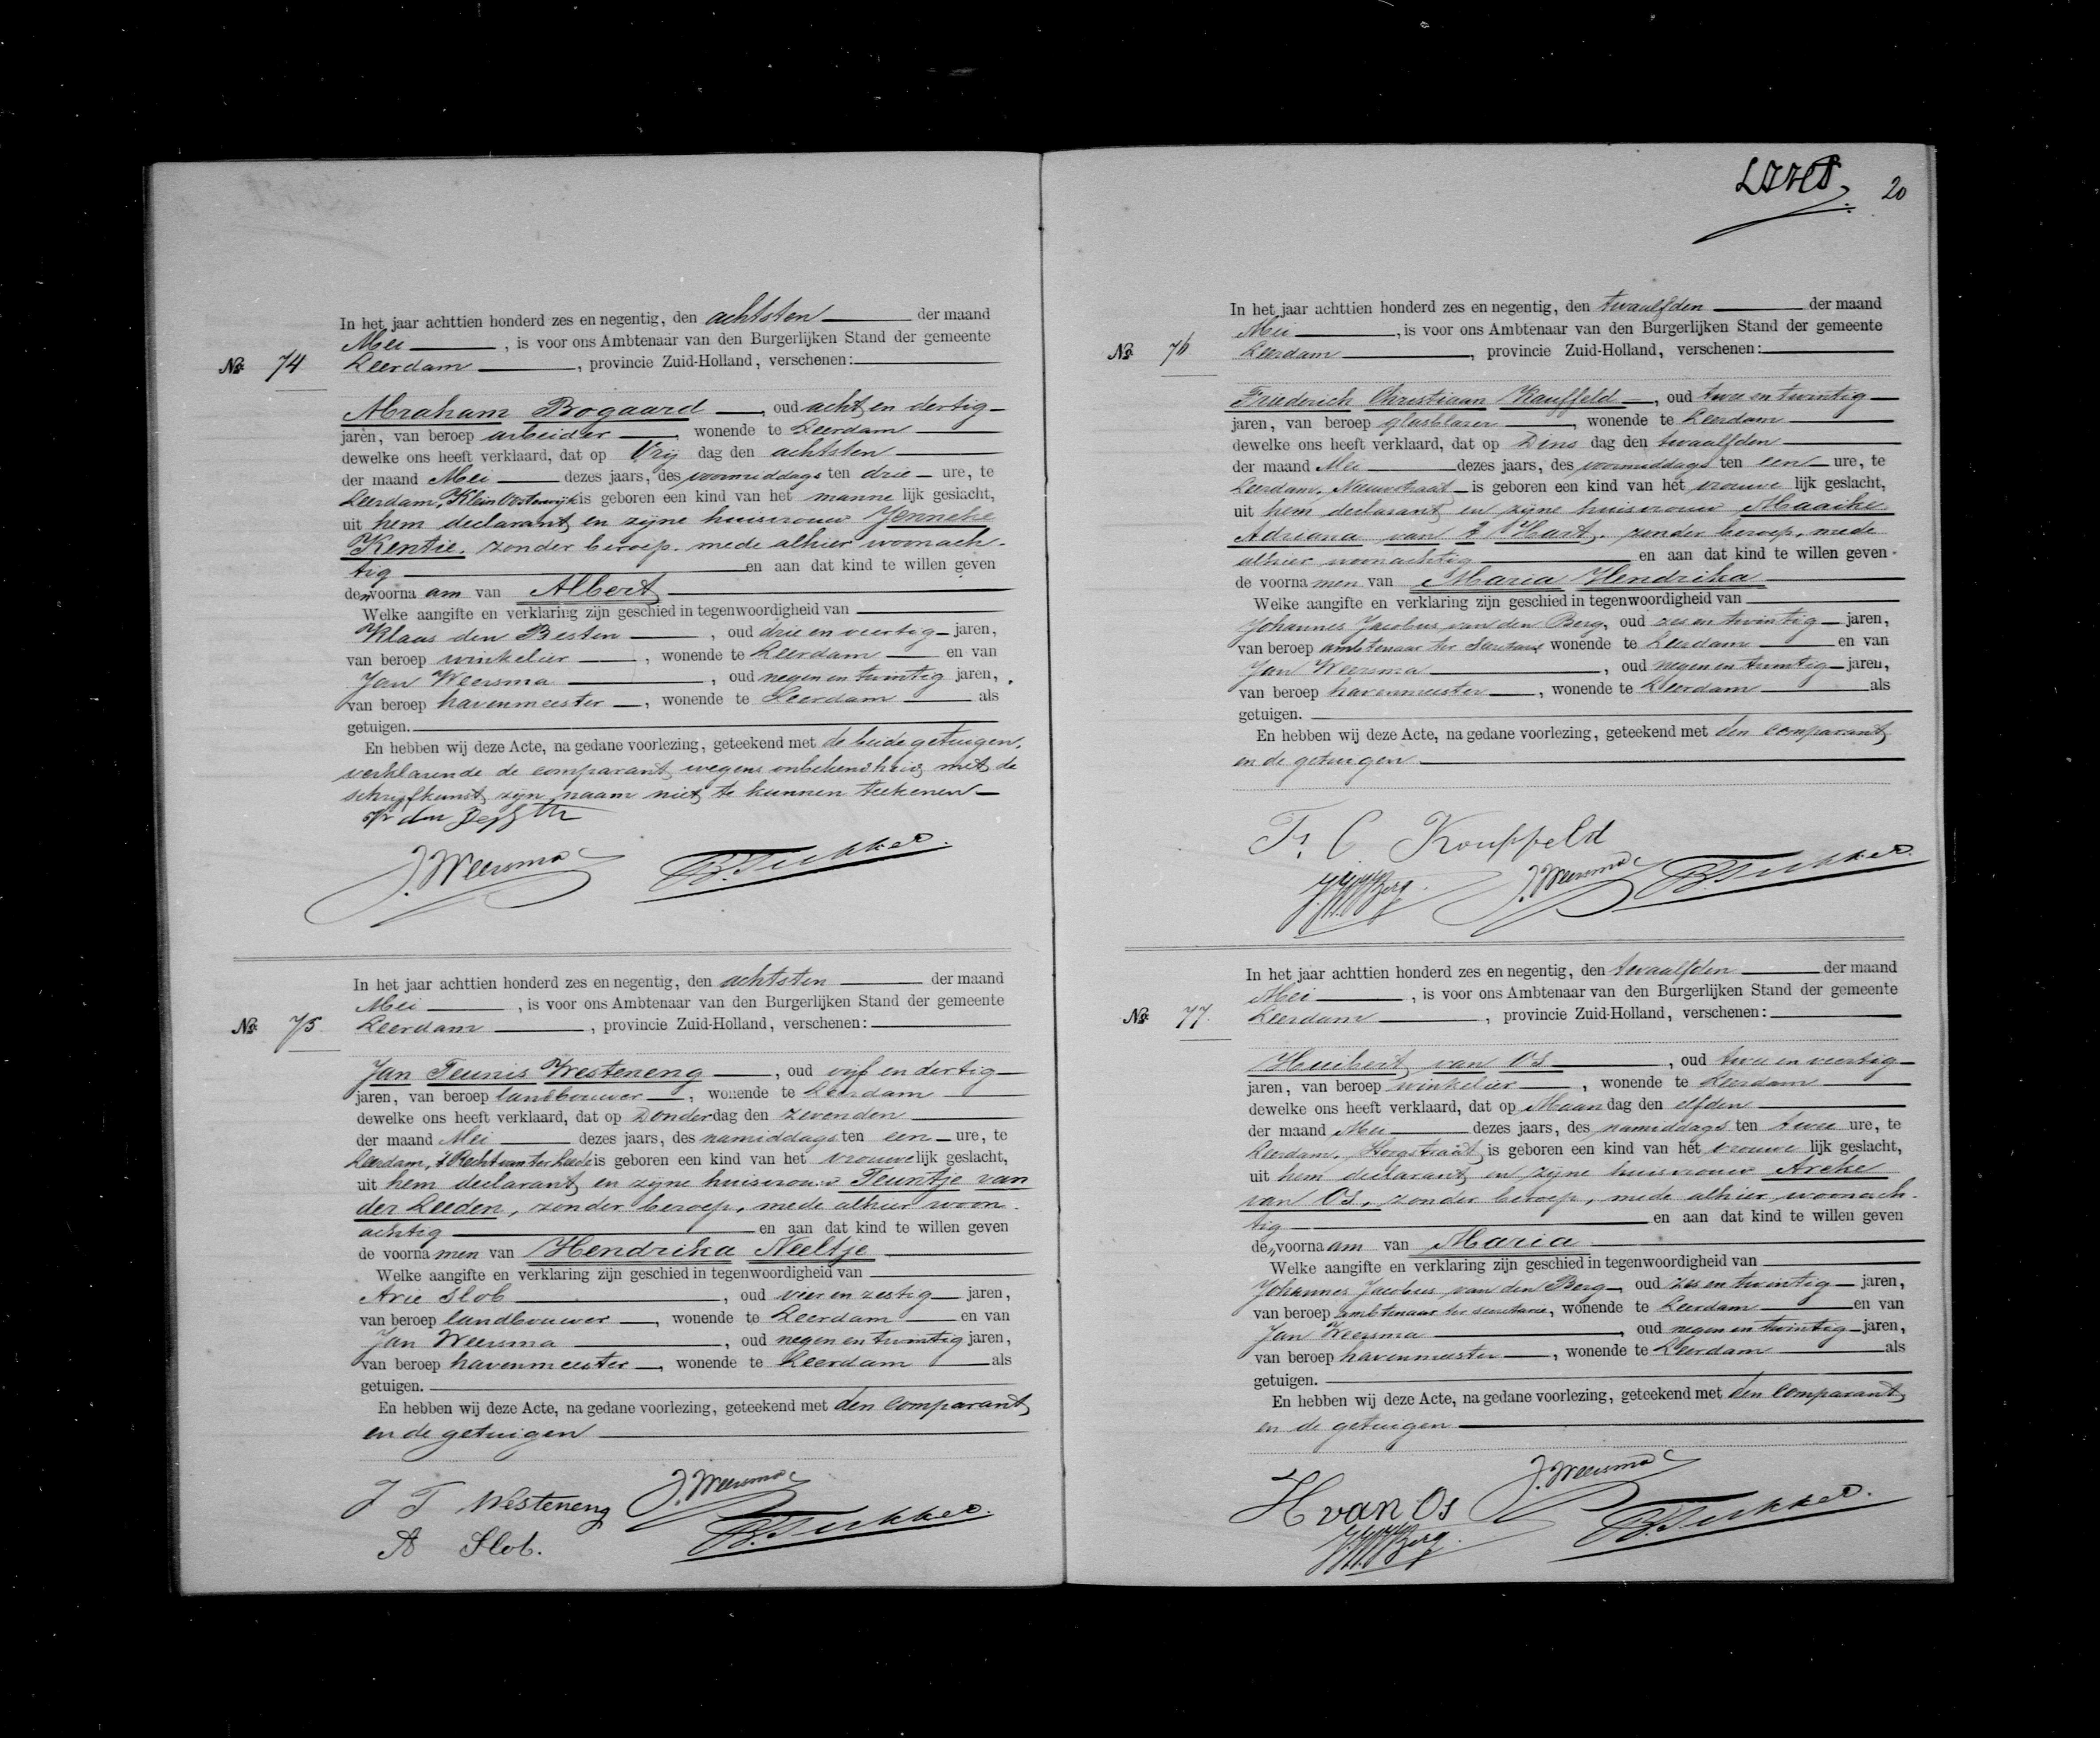 In het jaar achttien honderd zes en negentig, den achtsten der maand
Mei, is voor ons Ambtenaar van den Burgerlijken Stand der gemeente
No. 74 Leerdam, provincie Zuid-Holland, verschenen:
Abraham Bogaard, oud acht en dertig
jaren, van beroep arbeider, wonende te Leerdam
dewelke ons heeft verklaard, dat op Vrij dag den achtsten
der maand Mei dezes jaars, des voormiddags ten drie ure, te
Leerdam, Klein Oosterwijk is geboren een kind van het manne lijk geslacht,
uit hem declarant en zijne huisvrouw Jenneke
Kentie, zonder beroep, mede alhier woonach-
tig en aan dat kind te willen geven
den voorna am van Albert
Welke aangifte en verklaring zijn geschied in tegenwoordigheid van
Klaas den Besten, oud drie en veertig jaren,
van beroep winkelier, wonende te Leerdam en van
Jan Weersma, oud negen en twintig jaren,
van beroep havenmeester, wonende te Leerdam als
getuigen.
En hebben wij deze Acte, na gedane voorlezing, geteekend met de beide getuigen,
verklarende de comparant wegens onbekendheid met de
schrijfkunst zijn naam niet te kunnen teekenen
J. Weersma B. Tukker
In het jaar achttien honderd zes en negentig, den achtsten der maand
Mei, is voor ons Ambtenaar van den Burgerlijken Stand der gemeente
No. 75 Leerdam, provincie Zuid-Holland, verschenen:
Jan Teunis Westeneng, oud vijf en dertig
jaren, van beroep landbouwer, wonende te Leerdam
dewelke ons heeft verklaard, dat op Donderdag den zevenden
der maand Mei dezes jaars, des namiddags ten een ure, te
Leerdam, 't Recht van ter Leede is geboren een kind van het vrouwelijk geslacht,
uit hem declarant en zijne huisvrouw Teuntje van
der Leeden, zonder beroep, mede alhier woon-
achtig en aan dat kind te willen geven
de voorna men van Hendrika Neeltje
Welke aangifte en verklaring zijn geschied in tegenwoordigheid van
Arie Slob, oud vier en zestig jaren,
van beroep landbouwer, wonende te Leerdam en van
Jan Weersma, oud negen en twintig jaren,
van beroep havenmeester, wonende te Leerdam als
getuigen.
En hebben wij deze Acte, na gedane voorlezing, geteekend met den comparant
en de getuigen
J T Westeneng J. Weersma
A Slob. B. Tukker
20
In het jaar achttien honderd zes en negentig, den twaalfden der maand
Mei, is voor ons Ambtenaar van den Burgerlijken Stand der gemeente
No. 76 Leerdam, provincie Zuid-Holland, verschenen:
Friederich Christiaan Kauffeld, oud twee en twintig
jaren, van beroep glasblazer, wonende te Leerdam
dewelke ons heeft verklaard, dat op Dins dag den twaalfden
der maand Mei dezes jaars, des voormiddags ten een ure, te
Leerdam, Nieuwstraat is geboren een kind van het vrouwe lijk geslacht,
uit hem declarant en zijne huisvrouw Maaike
Adriana van 't Hart, zonder beroep, mede
alhier woonachtig en aan dat kind te willen geven
de voorna men van Maria Hendrika
Welke aangifte en verklaring zijn geschied in tegenwoordigheid van
Johannes Jacobus van den Berg, oud zes en twintig jaren,
van beroep ambtenaar ter secretarie wonende te Leerdam en van
Jan Weersma, oud negen en twintig jaren,
van beroep havenmeester, wonende te Leerdam als
getuigen.
En hebben wij deze Acte, na gedane voorlezing, geteekend met den comparant
en de getuigen
Fr. C Kouffeld
J.J.v.d.Berg. J. Weersma B. Tukker
In het jaar achttien honderd zes en negentig, den twaalfden der maand
Mei, is voor ons Ambtenaar van den Burgerlijken Stand der gemeente
No. 77. Leerdam, provincie Zuid-Holland, verschenen:
Huibert van Os, oud twee en veertig
jaren, van beroep winkelier, wonende te Leerdam
dewelke ons heeft verklaard, dat op Maan dag den elfden
der maand Mei dezes jaars, des namiddags ten twee ure, te
Leerdam, Hoogstraat is geboren een kind van het vrouwe lijk geslacht,
uit hem declarant en zijne huisvrouw Areke
van Os, zonder beroep, mede alhier woonach-
tig en aan dat kind te willen geven
den voorna am van Maria
Welke aangifte en verklaring zijn geschied in tegenwoordigheid van
Johannes Jacobus van den Berg, oud zes en twintig jaren,
van beroep ambtenaar ter secretarie, wonende te Leerdam en van
Jan Weersma, oud negen en twintig jaren,
van beroep havenmeester, wonende te Leerdam als
getuigen.
En hebben wij deze Acte, na gedane voorlezing, geteekend met den comparant
en de getuigen
H van Os J. Weersma
J.J.v.d.Berg. B. Tukker